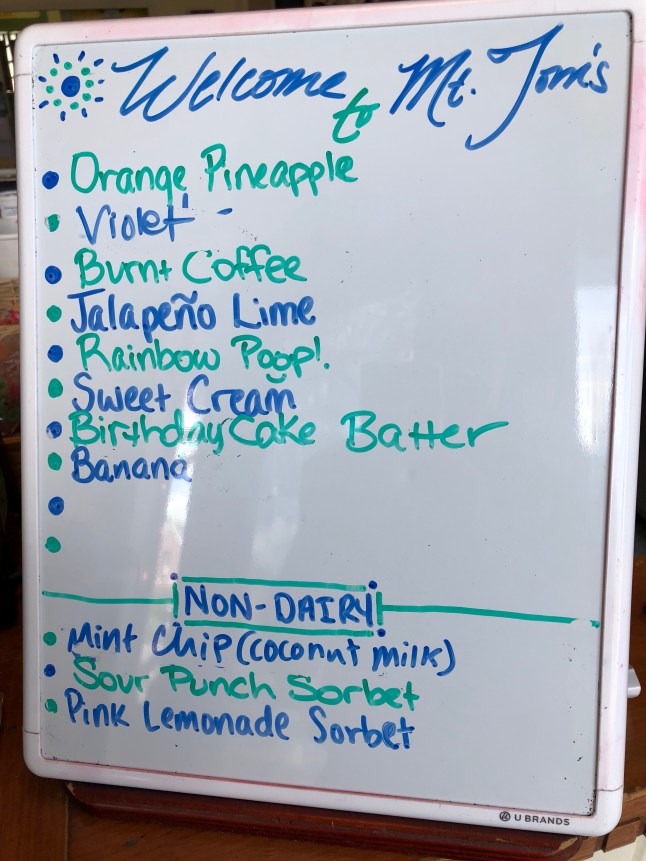 Welcome to Mt. Tom's
Orange Pineapple
Violet -
Burnt Coffee
Jalapeño Lime
Rainbow Poop!
Sweet Cream
Birthday Cake Batter
Banana
NON-DAIRY
Mint Chip (coconut milk)
Sour Punch Sorbet
Pink Lemonade Sorbet
U BRANDS